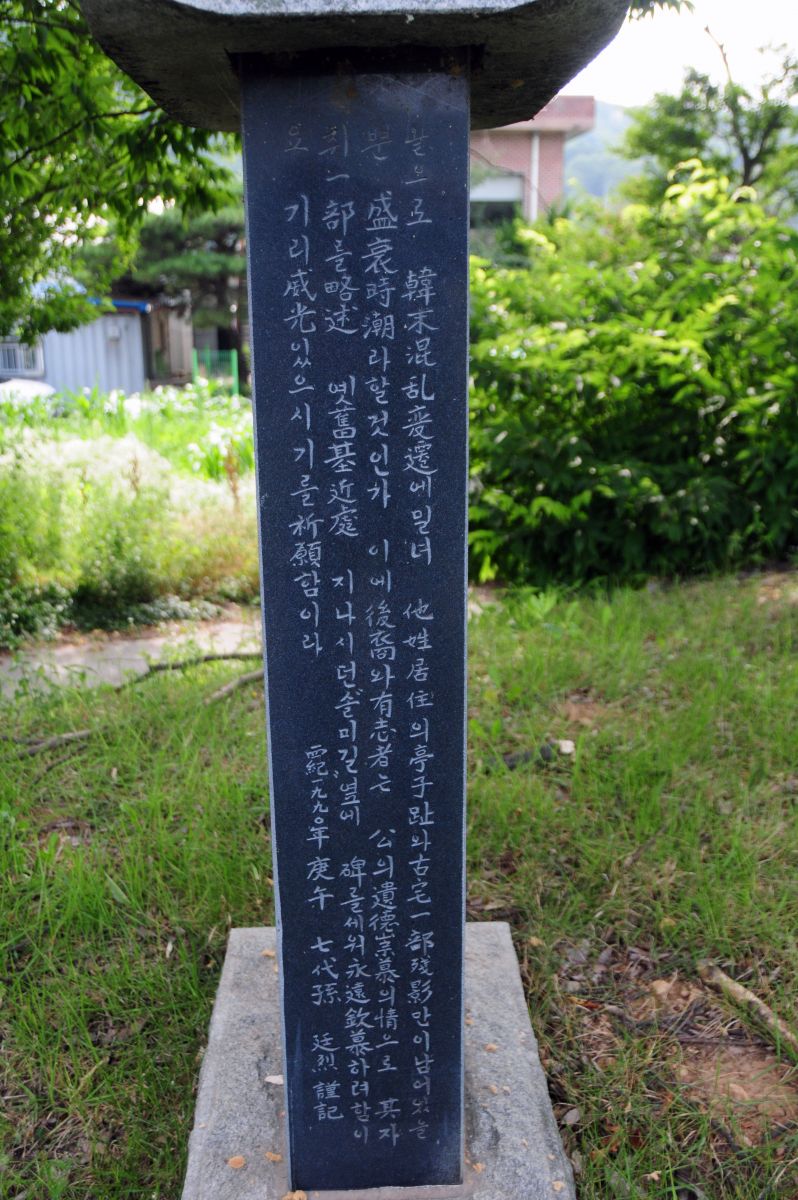 활으로 韓末混乱変遷에밀녀 他姓居住의亭子趾와古宅一部残影만이남어있을
뿐 盛衰時潮라할것인가 이에後裔와有志者는 公의遺德崇慕의情으로 其자
취一部를略述 옛舊基近處 지나시던솔미길옆에 碑를세워永遠欽慕하려함이
요 기리威光있으시기를祈願함이라
西紀一九九○年 庚午 七代孫 廷烈 謹記